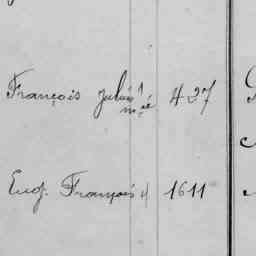 François Jules 427
Eug. François 1611